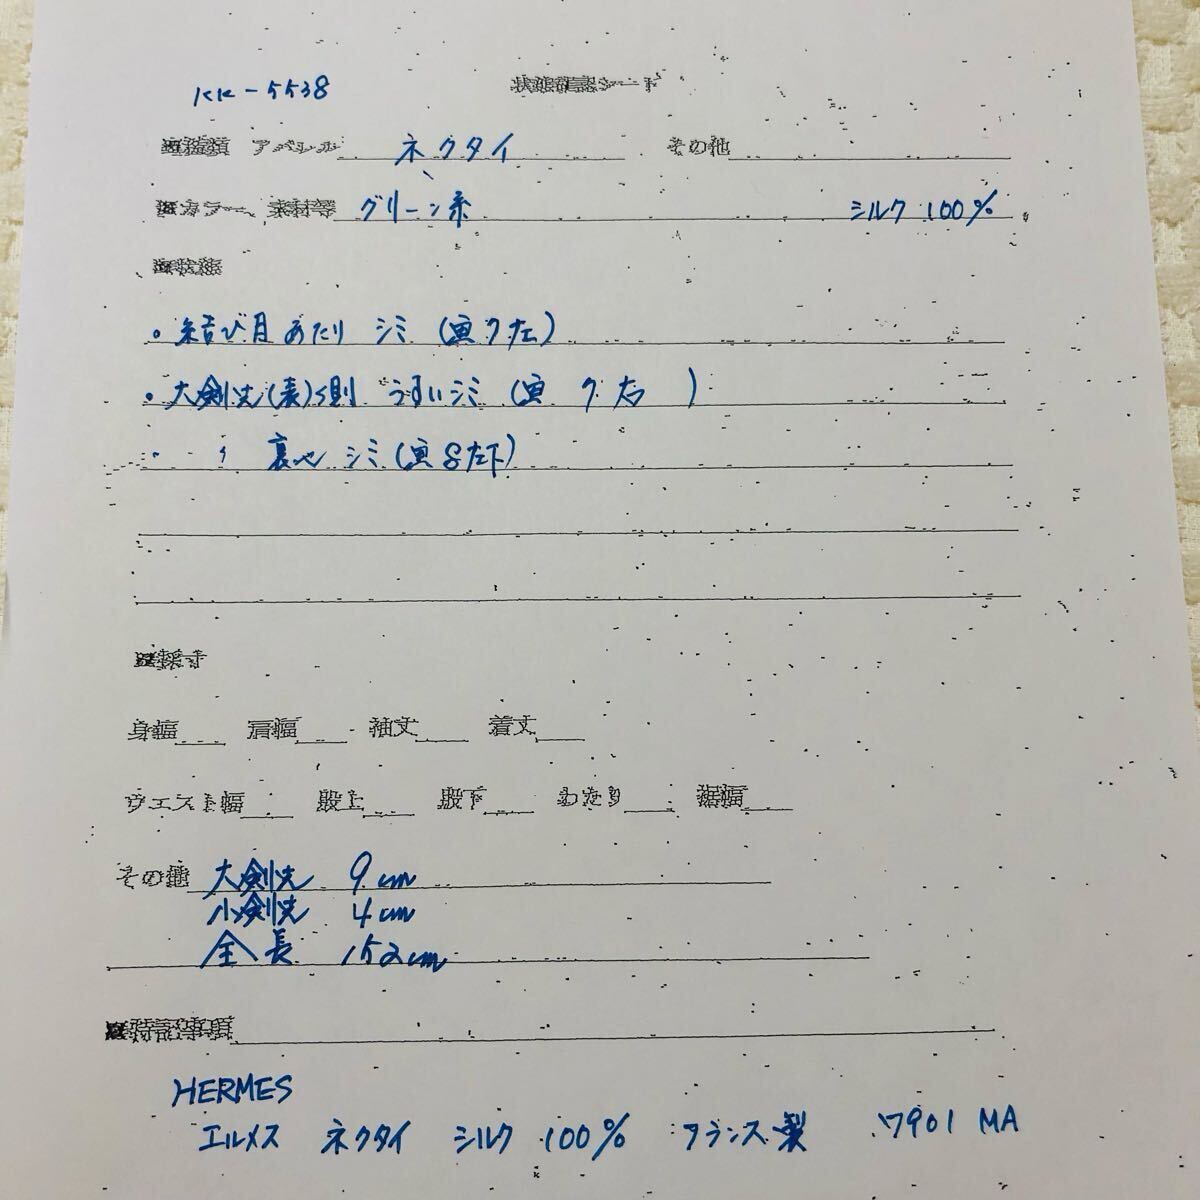 KK-5538
状態確認シート
■種類 アパレル ネクタイ その他
■カラー、素材等 グリーン系 シルク 100%
■状態
• 結び目あたり シミ (画7左)
• 大剣先(表)側 うすいシミ (画 7 右 )
• 〃 裏地 シミ (画8左下)
■採寸
身幅 肩幅 袖丈 着丈
ウエスト幅 股上 股下 わたり 裾幅
その他 大剣先 9cm
小剣先 4cm
全長 152cm
■特記事項
HERMES
エルメス ネクタイ シルク 100% フランス製 7901 MA